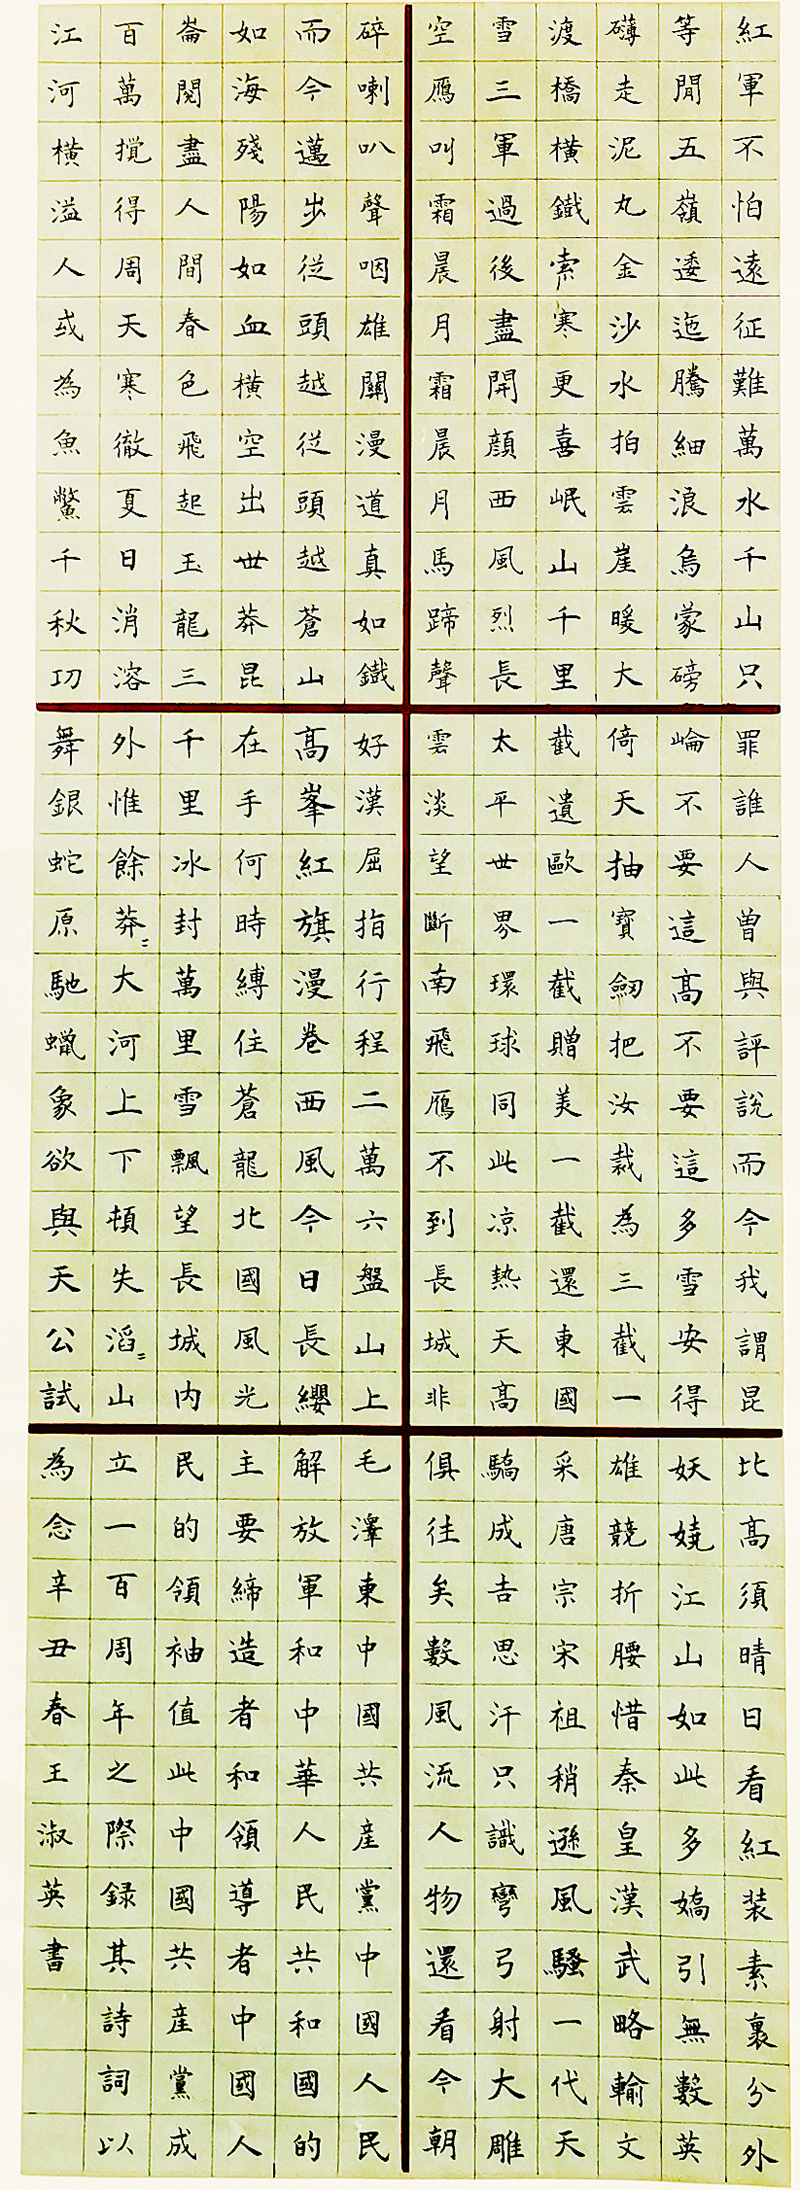 紅軍不怕遠征難萬水千山只
等閒五嶺逶迤騰細浪烏蒙磅
礴走泥丸金沙水拍雲崖暖大
渡橋橫鐵索寒更喜岷山千里
雪三軍過後盡開顔西風烈長
空雁叫霜晨月霜晨月馬蹄聲
碎喇叭聲咽雄關漫道真如鐵
而今邁步從頭越從頭越蒼山
如海殘陽如血橫空出世莽昆
崙閱盡人間春色飛起玉龍三
百萬攪得周天寒徹夏日消溶
江河橫溢人或為魚鱉千秋功
罪誰人曾與評說而今我謂昆
崘不要這高不要這多雪安得
倚天抽寶劍把汝裁為三截一
截遺歐一截贈美一截還東國
太平世界環球同此涼熱天高
雲淡望斷南飛雁不到長城非
好漢屈指行程二萬六盤山上
高峯紅旗漫卷西風今日長纓
在手何時縛住蒼龍北國風光
千里冰封萬里雪飄望長城內
外惟餘莽〻大河上下頓失滔〻山
舞銀蛇原馳蠟象欲與天公試
比高須晴日看紅裝素裹分外
妖嬈江山如此多嬌引無數英
雄競折腰惜秦皇漢武略輸文
采唐宗宋祖稍遜風騷一代天
驕成吉思汗只識彎弓射大雕
俱往矣數風流人物還看今朝
毛澤東中國共産黨中國人民
解放軍和中華人民共和國的
主要締造者和領導者中國人
民的領袖值此中國共産黨成
立一百周年之際録其詩詞以
為念辛丑春王淑英書